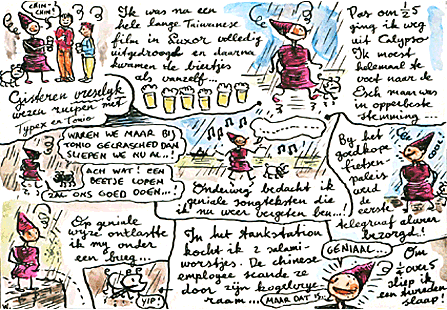 CHIN CHIN!
Gisteren vreselijk
wezen zuipen met
Typex en Tonio
Ik was na een
hele lange Taiwanese
film in Luxor volledig
uitgedroogd en daarna
kwamen de biertjes
als vanzelf...
Pas om 1/2 5
ging ik weg
uit Calypso
Ik moest
helemaal te
voet naar de
Esch maar was
in opperbeste
stemming...
WAREN WE MAAR BIJ
TONIO GECRASCHED DAN
SLIEPEN WE NU AL..!
ACH WAT! EEN
BEETJE LOPEN
ZAL ONS GOED DOEN...!
Onderweg bedacht ik
geniale songteksten die
ik nu weer vergeten ben...!
By het
goedkope
fietsen-
paleis
werd
de
eerste
telegraaf alweer
bezorgd!
Op geniale
wijze ontlastte
ik my onder
een brug...
YIP!
In het tankstation
kocht ik 2 salami-
worstjes. De chinese
employee scande ze
door zijn kogelvrye
raam...
MAAR DAT IS..
GENIAAL...
Om
1/2 over 5
sliep ik
een tevreden
slaap!